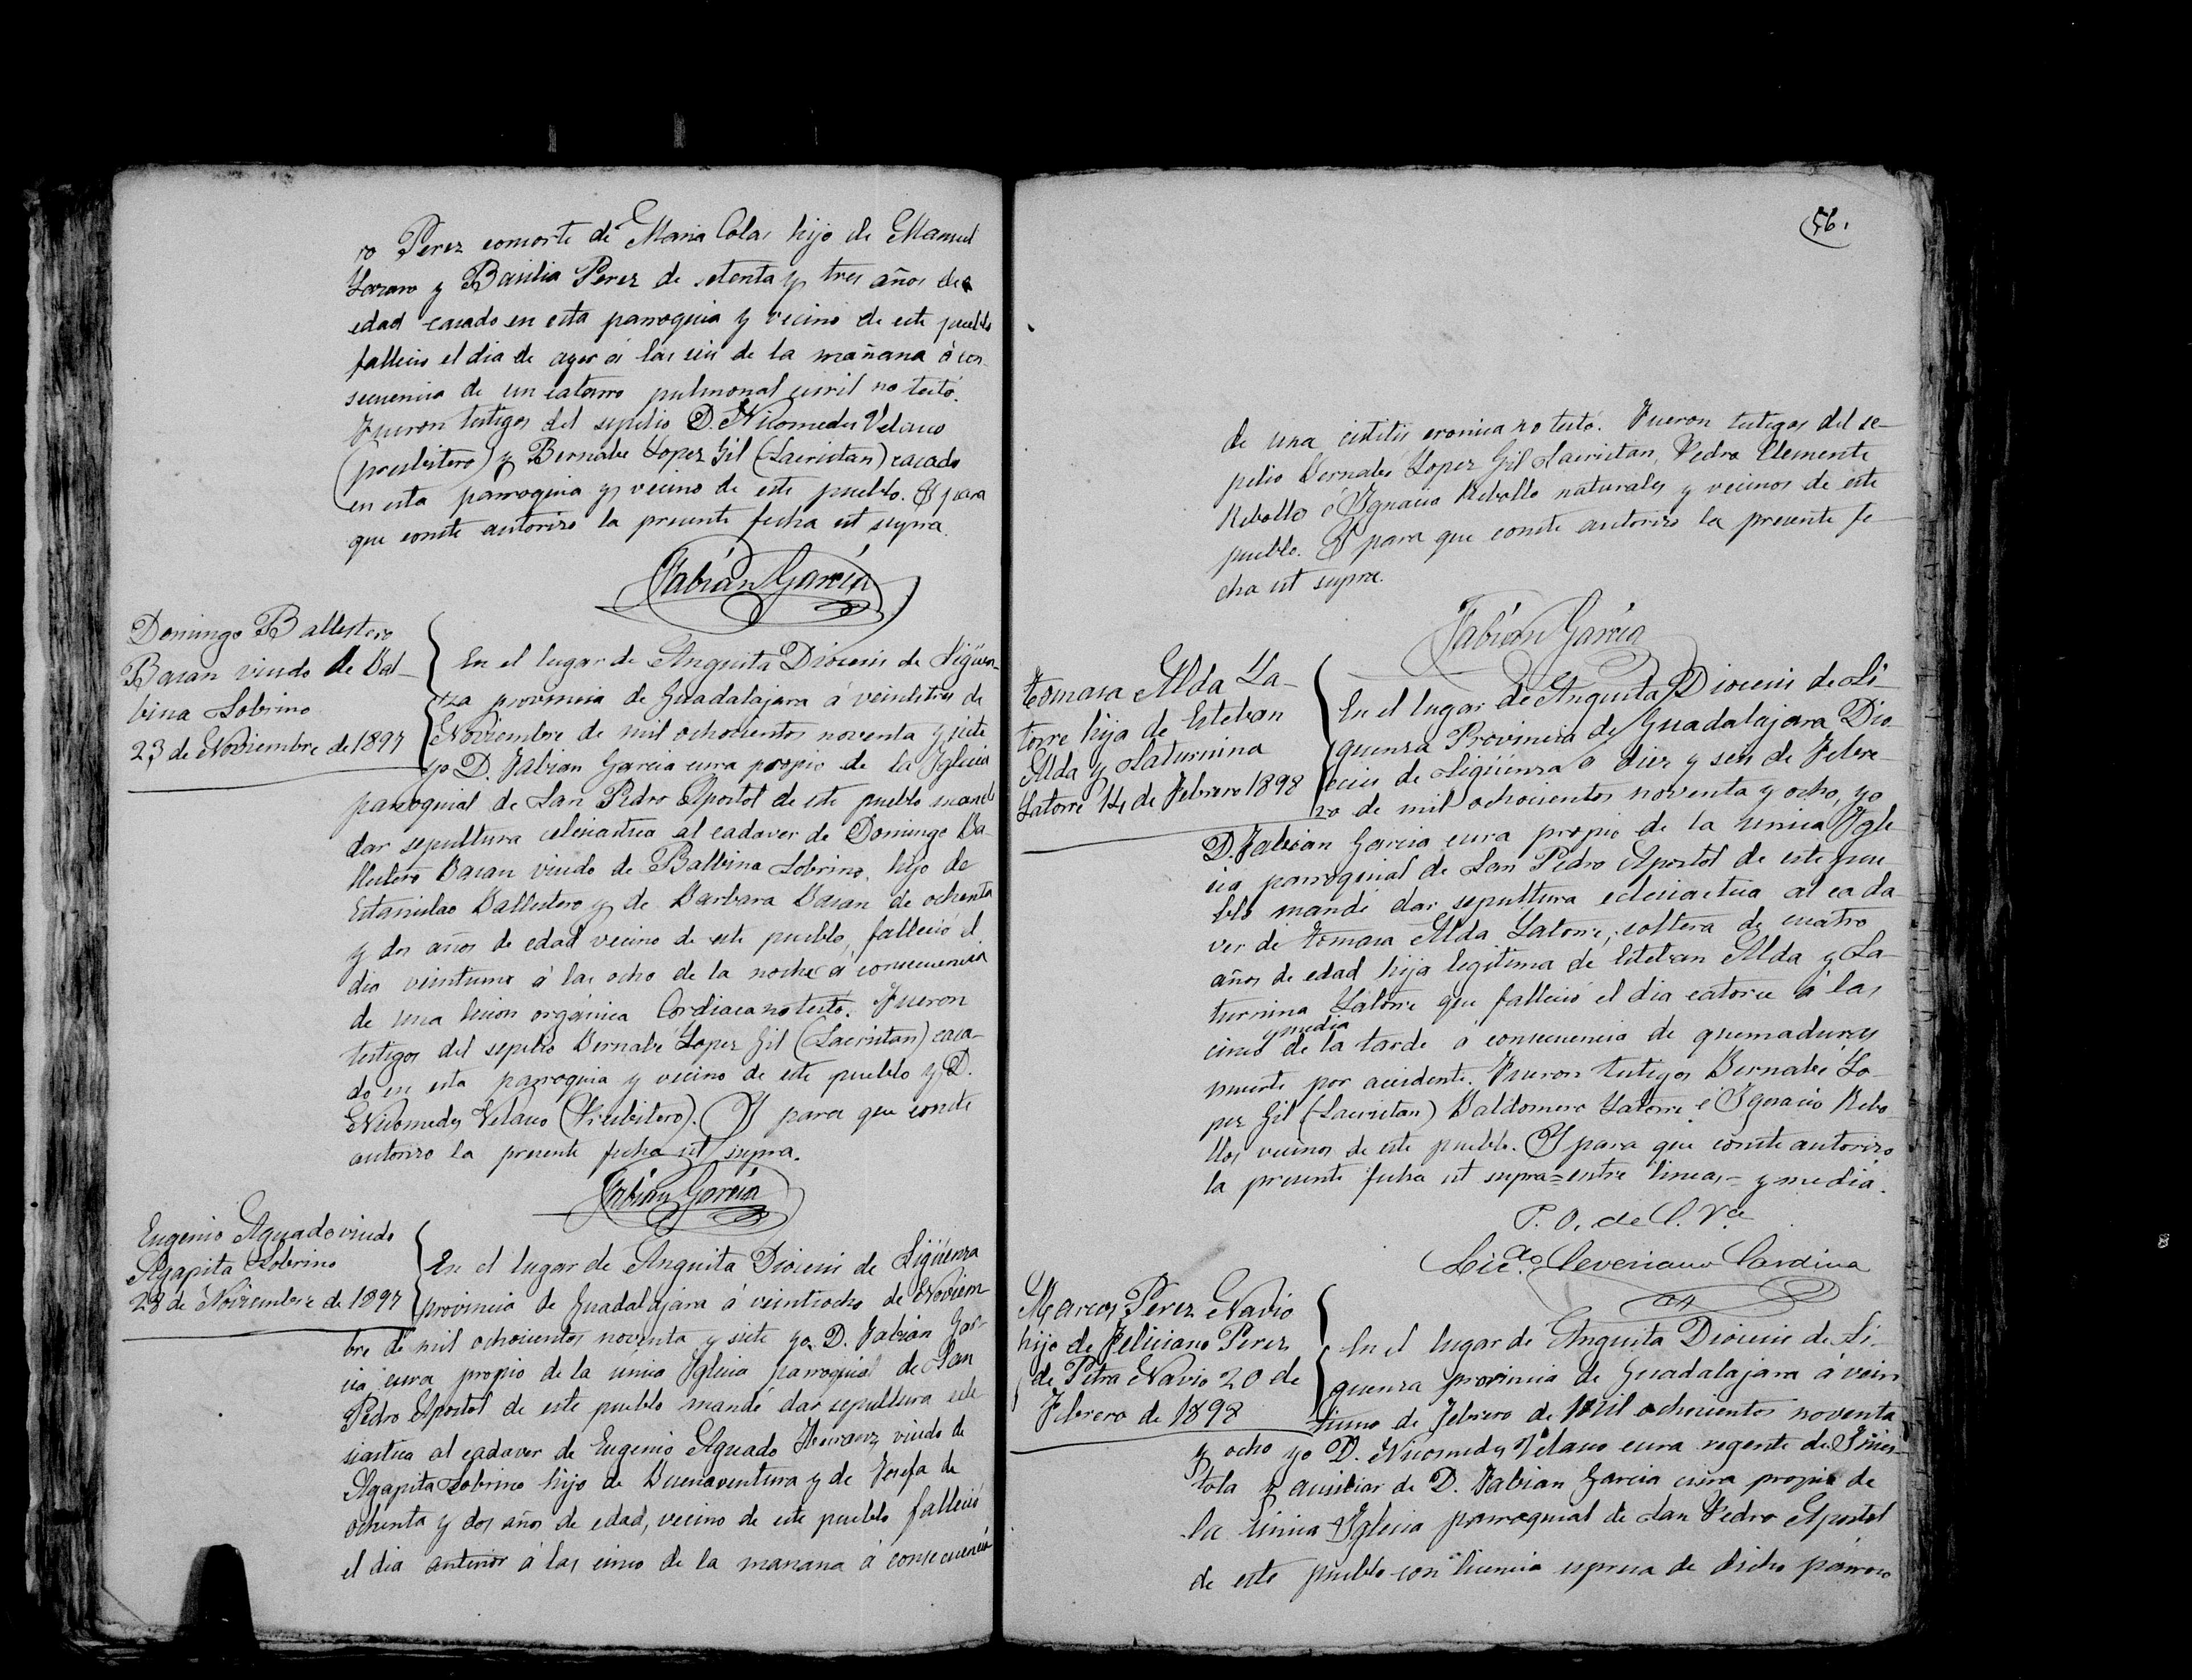 ro Perez consorte de Maria Colas hijo de Manuel
Lozano y Basilia Perez de setenta y tres años de
edad casado en esta parroquia y vecino de este pueblo
fallecio el dia de ayer á las seis de la mañana á con
secuencia de un catarro pulmonal senil no testó.
Fueron testigos del sepelio D. Nicomedes Velasco
(presbitero) y Bernabe Lopez Gil (Sacristan) casado
en esta parroquia y vecino de este pueblo. Y para
que conste autorizo la presente fecha ut supra.
Fabián García
Domingo Ballestero
Bazan viudo de Bal-
bina Sobrino
23 de Noviembre de 1897
En el lugar de Anguita Diocesis de Sigüen-
za provincia de Guadalajara á veintitres de
Noviembre de mil ochocientos noventa y siete
yo D. Fabian Garcia cura propio de la Iglesia
parroquial de San Pedro Apostol de este pueblo mandé
dar sepultura eclesiastica al cadaver de Domingo Ba-
llestero Bazan viudo de Balbina Sobrino, hijo de
Estanislao Ballestero y de Barbara Bazan de ochenta
y dos años de edad vecino de este pueblo, falleció el
dia veintiuno á las ocho de la noche á consecuencia
de una lesion orgánica Cordiaca no testó. Fueron
testigos del sepelio Bernabe Lopez Gil (Sacristan) casa-
do en esta parroquia y vecino de este pueblo y D.
Nicomedes Velasco (Presbitero). Y para que conste
autorizo la presente fecha ut supra.
Fabián García
Eugenio Aguado viudo
Agapita Sobrino
28 de Noviembre de 1897
En el lugar de Anguita Diocesis de Sigüenza
provincia de Guadalajara á veintiocho de Noviem
bre de mil ochocientos noventa y siete yo D. Fabián Gar-
cia cura propio de la unica Iglesia parroquial de San
Pedro Apostol de este pueblo mandé dar sepultura ecle
siastica al cadaver de Eugenio Aguado viudo de
Agapita Sobrino hijo de Buenaventura y de Josefa de
ochenta y dos años de edad, vecino de este pueblo falleció
el dia anterior á las cinco de la manana á consecuencia
56.
de una cistitis cronica no testó. Fueron testigos del se-
pelio Bernabé Lopez Gil Sacristan, Pedro Clemente
Rebollo é Ignacio Rebollo naturales y vecinos de este
pueblo. Y para que conste autorizo la presente fe
cha ut supra.
Fabián García
Tomasa Alda La-
torre hija de Esteban
Alda y Saturnina
Latorre 14 de Febrero 1898
En el lugar de Anguita Diocesis de Si
guenza Provincia de Guadalajara Dio
cesis de Sigüenza a diez y seis de Febre
ro de mil ochocientos noventa y ocho, yo
D. Fabian Garcia cura propio de la unica Igle
sia parroquial de San Pedro Apostol de este pue
blo mandé dar sepultura eclesiastica al cada
ver de Tomasa Alda Latorre, soltera de cuatro
años de edad hija legitima de Esteban Alda y Sa-
turnina Latorre que falleció el dia catorce á las
y media
cinco de la tarde á consecuencia de quemaduras
muerte por accidente. Fueron testigos Bernabé Lo-
pez Gil (Sacristan) Baldomero Latorre é Ignacio Rebo
llo, vecinos de este pueblo. Y para que conste autorizo
la presente fecha ut supra=entre lineas=y media.
P. O. de
Licdo. Severiano Sardina
Marcos Perez Navio
hijo de Feliciano Perez
de Petra Navio 20 de
Febrero de 1898
En el lugar de Anguita Diocesis de Si-
guenza provincia de Guadalajara á vein
tiuno de Febrero de mil ochocientos noventa
y ocho yo D. Nicomedes Velasco cura regente de Inies-
tola y auxiliar de D. Fabian Garcia cura propio de
la única Iglesia parroquial de San Pedro Apostol
de este pueblo con licencia espresa de dicho párroco